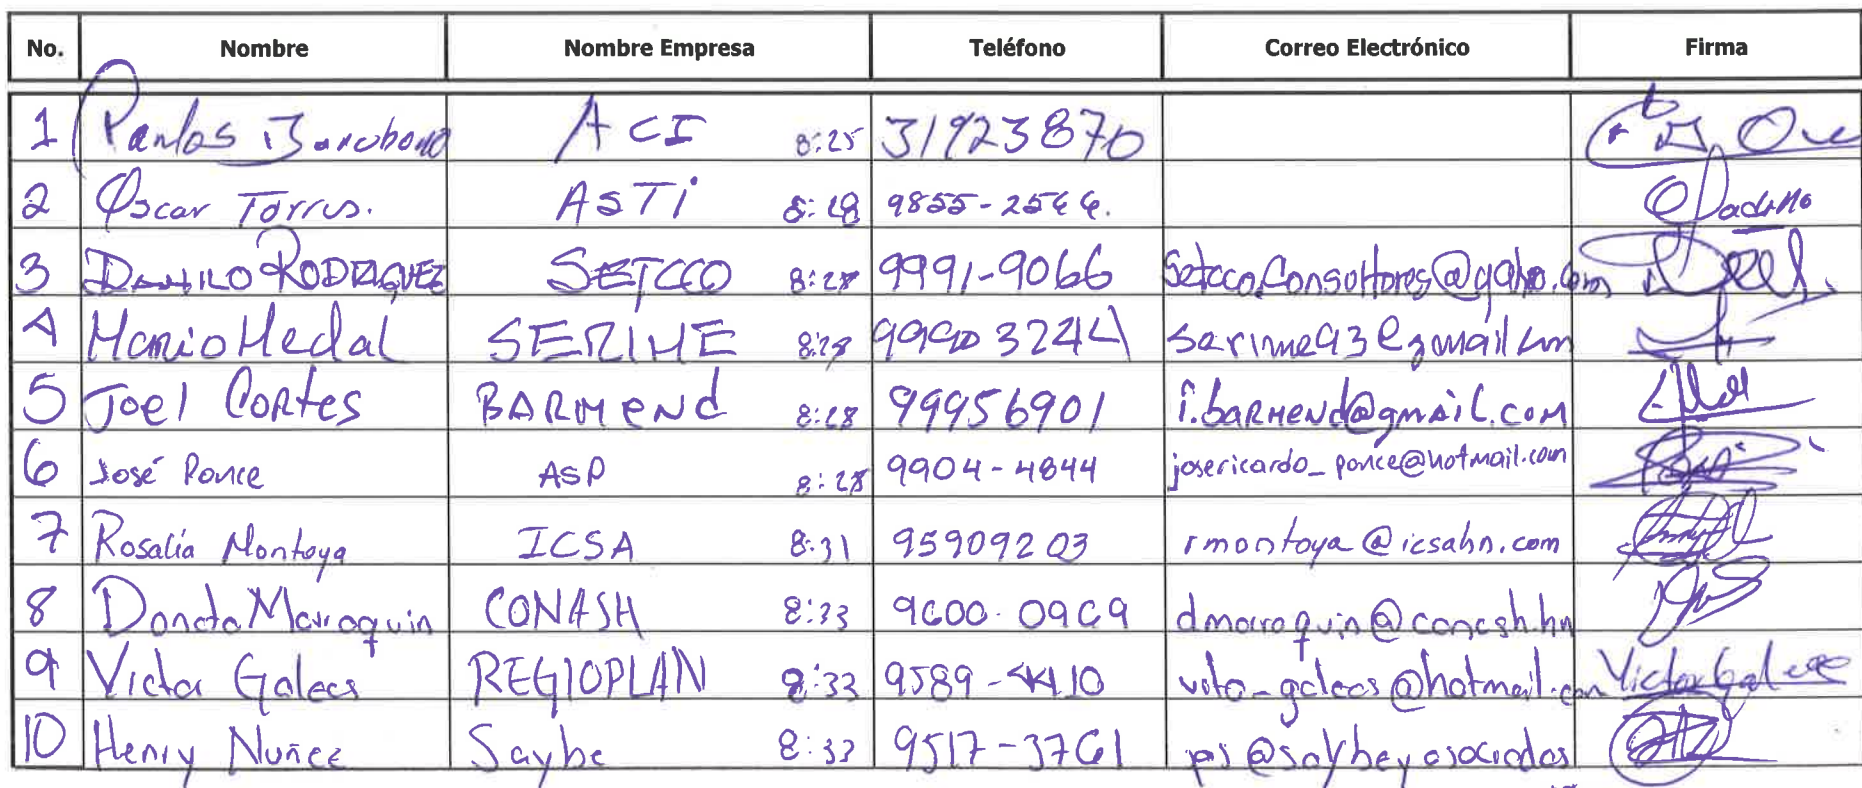 No. Nombre Nombre Empresa Teléfono Correo Electrónico Firma
1 ACI 8:25 31923870
2 Oscar Torres. ASTI 8:28 9855-2566.
3 DANILO RODRIGUEZ SETCCO 8:28 9991-9066 Setcco.Consultores@yahoo.com
4 Mario Medal SERIME 8:28 99903244 serime93@gmail.com
5 Joel Cortes BARMENd 8:28 99956901 i.barmend@gmail.com
6 José Ponce ASP 8:28 9904-4844 josericardo_ponce@hotmail.com
7 Rosalía Montoya ICSA 8:31 95909203 rmontoya@icsahn.com
8 Donato Marroquin CONASH 8:33 9600-0969 dmarroquin@conash.hn
9 Victor Galeas REGIOPLAN 8:33 9589-4410 vito_galeas@hotmail.com Victor Galeas
10 Henry Nuñez Saybe 8:33 9517-3761